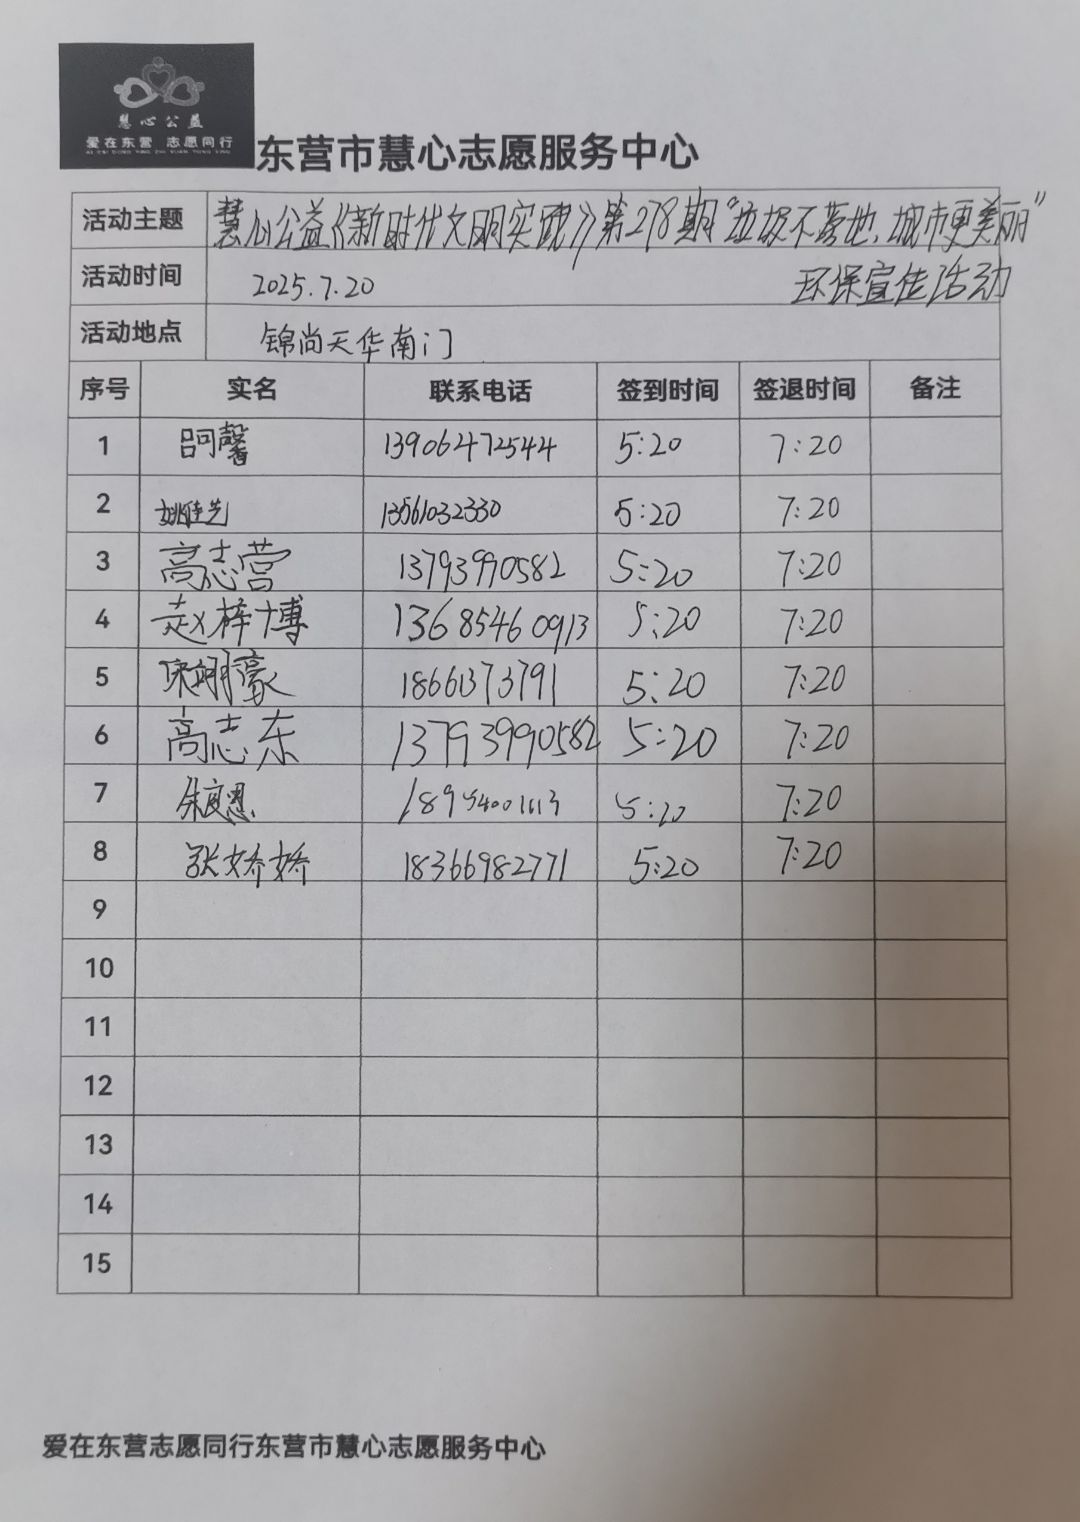 慧心公益
爱在东营 志愿同行
东营市慧心志愿服务中心
活动主题 慧心公益《新时代文明实践》第278期“垃圾不落地,城市更美丽”
环保宣传活动
活动时间 2025.7.20
活动地点 锦尚天华南门
序号 实名 联系电话 签到时间 签退时间 备注
1 吕可馨 13906472544 5:20 7:20
2 姚佳先 13561032330 5:20 7:20
3 高志营 13793990582 5:20 7:20
4 赵梓博 13685460913 5:20 7:20
5 翊豪 18661373791 5:20 7:20
6 高志东 13793990582 5:20 7:20
7 5:20 7:20
8 张娇娇 18366982771 5:20 7:20
9
10
11
12
13
14
15
爱在东营志愿同行东营市慧心志愿服务中心